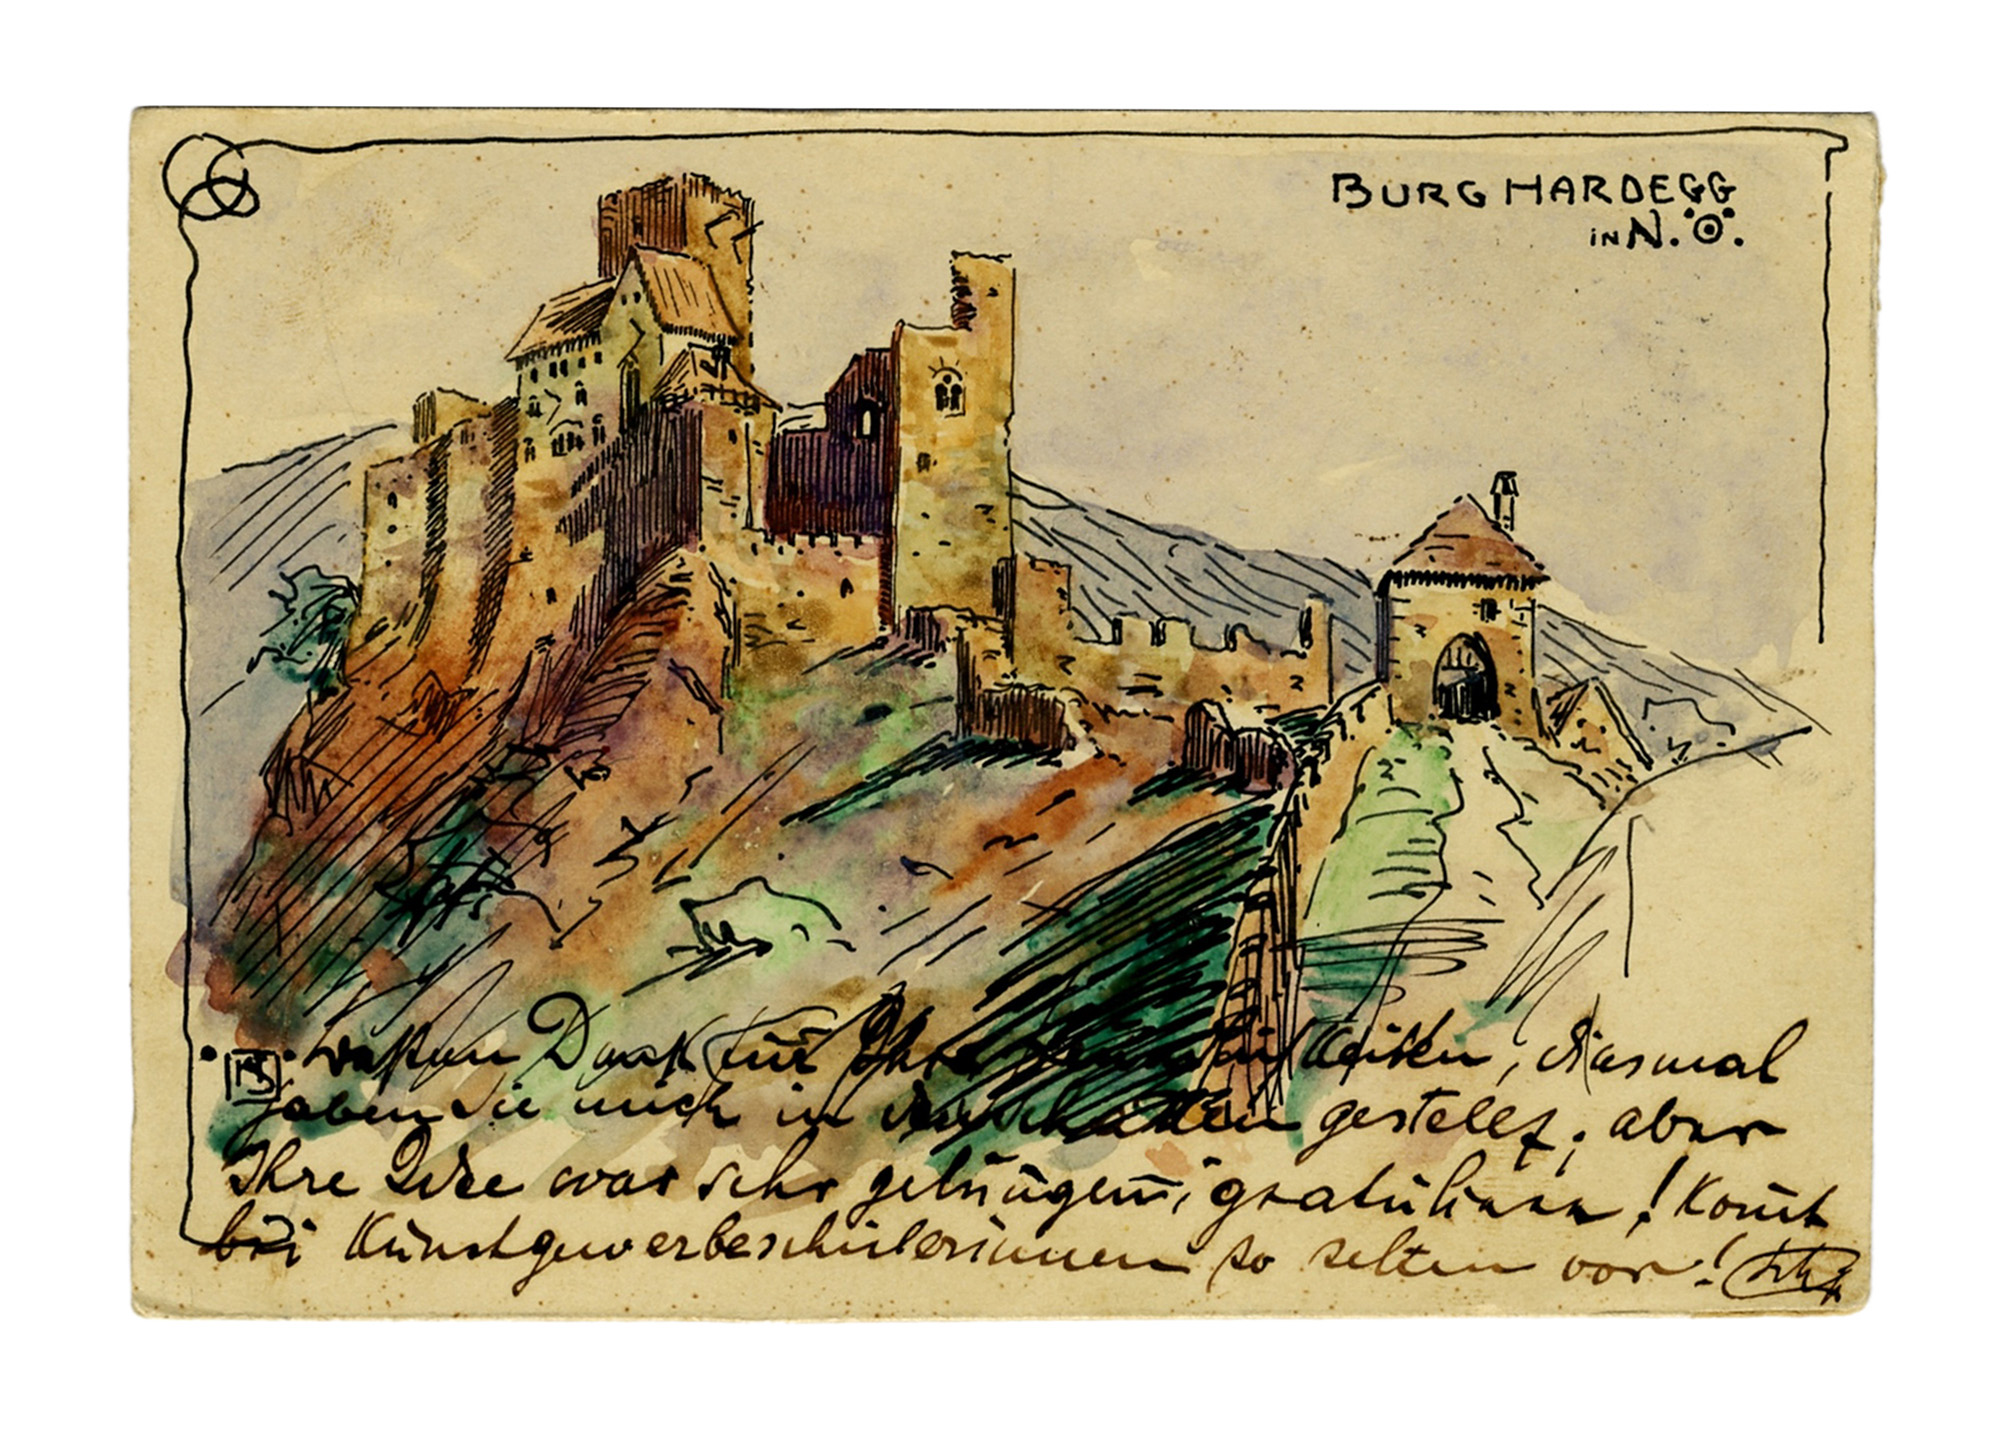 BURG HARDEGG
in N. Ö.
Dank für Ihre, diesmal
haben Sie mich in den Schatten gestellt, aber
Ihre Idee war sehr gelungen, gratuliere! Komt
bei Kunstgewerbeschülerinnen so selten vor!